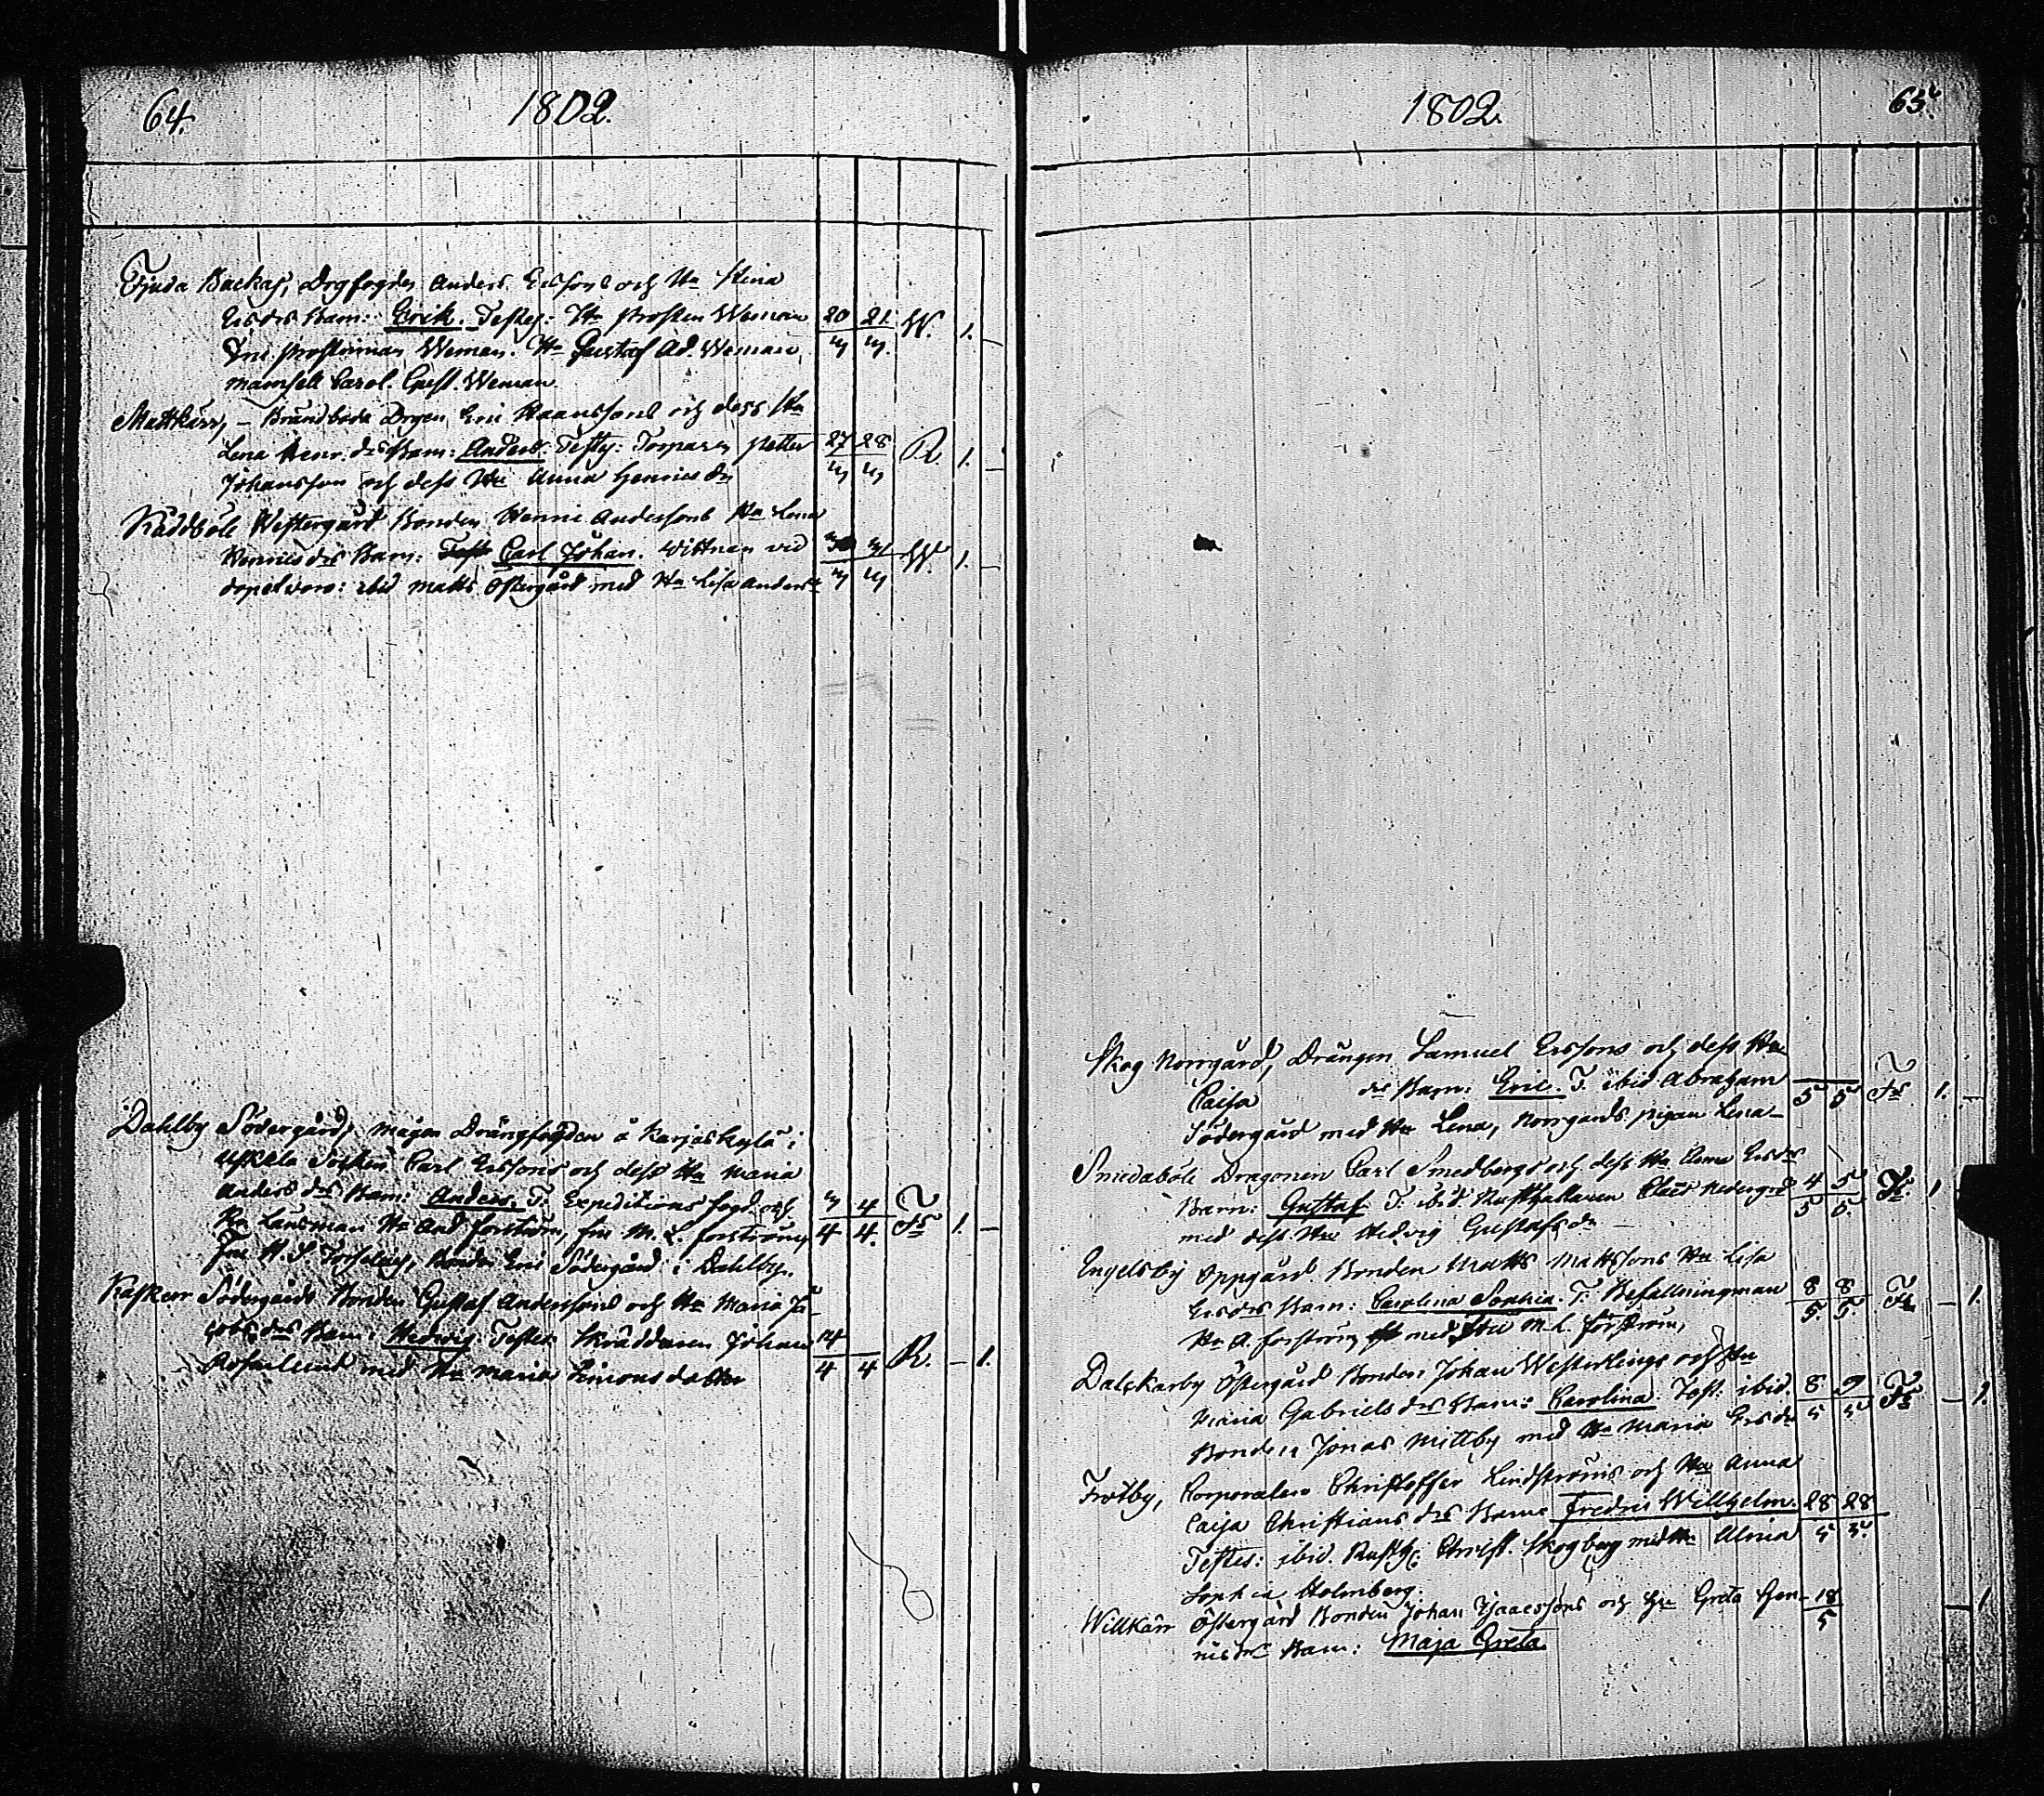 64. 1802.
Tjuda Backas, Drgfogden Anders Erssons och Hu Stina
Ersdrs Barn: Erik. Testes: Hr Prosten Weman 20 21 W. 1. –
Fru Prostinnan Weman. Hr Gustaf Ad. Weman, 3 3.
Mamsell Carol. Weman
Mattkärr, – Drgen Eric och dess Hu
Lena Henr. drs Barn: Anders. Testes: Petter 27 28 R. 1. –
Johansson och dess Hu Anna Henricsdr 3 3
Råddböle Westergård Bonden Henric Anderssons Hu Lena
Henricsdrs Barn: Test Carl Johan. Wittnen vid 30 31 W. 1. –
dopet voro: ibid Matts Östergård med Hu Lisa Andersdr 3 3
Dahlby Södergård, Mågen Drängfogden å Karjaskylä i
Uskela Socken Carl Erssons och dess Hu Maria
Anders drs Barn: Anders. T: Expeditions fogd. och 3 4 Fs 1. –
Länsman Hr And Forström, fru M. L. Forström, 4 4.
Bonden Eric Södergård i Dahlby.
Södergårds Bonden Gustaf Anderssons och Hu Maria Ja-
cobs drs Barn: Hedvig. Testes: Skräddaren Johan 4
Rosenlund med Hu Maria Simonsdotter 4 4 R. – 1.
1802. 65.
Skog Norrgård, Drängen Samuel Erssons och dess Hu
Caisa drs Barn: Eric. T. ibid Abraham 5 5 Fs. 1. –
Södergård med Hu Lena, Norrgårds pigan Lena –
Smedaböle Dragonen Carl Smedbergs och dess Hu Anna Ersdrs
Barn: Gustaf. T: ibid. Rusthållaren Nedergrd 4 5 Fs. 1
med dess Hu Hedvig Gustafsdr – 5 5.
Engelsby Oppgård Bonden Matts Mattssons Hu Lisa
Ersdrs Barn: Carolina Sophia. T: Befallningsman 8 8 Fs – 1.
Hr A. Forström med Fru M. L. Forström, 5. 5.
Dalskarby Östergård Bonden Johan Westerlings och Hu
Maria Gabriels drs Barn: Carolina. Test: ibid. 8 9 Fs – 1.
Bonden Jonas Mittby med Hu Maria Ersdr 5 5
Corporalen Christoffer Lindströms och Hu Anna
Caisa Christians drs Barn Fredric Wilhelm. 28 28
Testes: ibid. Rusth: Christ. Skogberg med Hu Ulrica 5 5.
Sophia Holmberg.
Willkärr Östergård Bonden Johan Isaacssons och Hu Greta Hen- 18 – 1
ricsdrs Barn: Maja Greta. 5